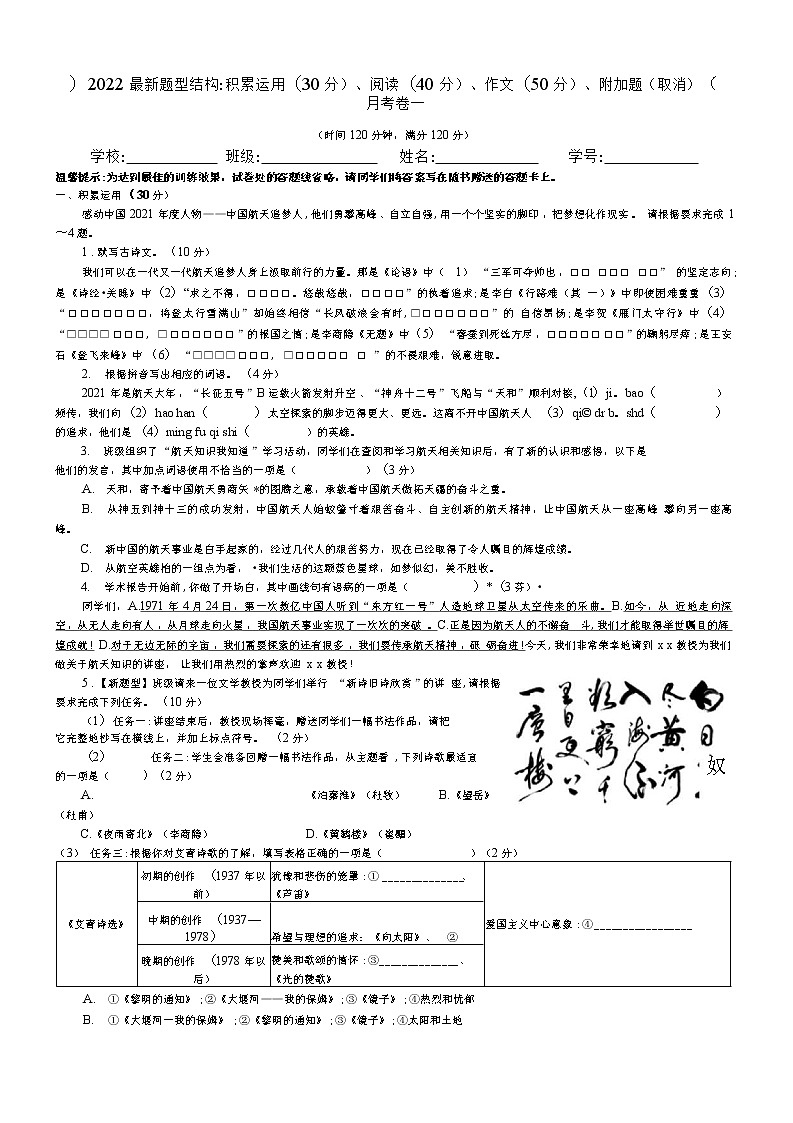 ）2022 最新题型结构:积累运用（30 分）、阅读（40 分）、作文（50 分）、附加题（取消）（
月考卷一
（时间 120 分钟，满分 120 分）
学校:____________ 班级:________________ 姓名:______________ 学号:_____________
温馨提示:为达到最佳的训练效果，试卷处的答题线省略，请同学们将答案写在随书赠送的答题卡上。
一、积累运用（30 分）
感动中国 2021 年度人物——中国航天追梦人,他们勇攀高峰、自立自强,用一个个坚实的脚印，把梦想化作现实。 请根据要求完成 1
～4 题。
1 . 默写古诗文。（10 分）
我们可以在一代又一代航天追梦人身上汲取前行的力量。那是《论语》中（ 1） “三军可夺帅也，□□ □□□ □□” 的坚定志向;
是《诗经•关雎》中（2）“求之不得，□□□□。悠哉悠哉，□□□□”的执着追求;是李白《行路难（其 一）》中即使困难重重（3）
“□□□□□□□，将登太行雪满山”却始终相信“长风破浪会有时,□□□□□□□”的 自信昂扬;是李贺《雁门太守行》中（4）
“□□□□ □□□, □□□□□□□”的报国之情;是李商隐《无题》中（5） “春蚕到死丝方尽，□□□□□ □□”的鞠躬尽瘁;是王安
石《登飞来峰》中（6） “□□□□ □□□, □□□□□□ □ ”的不畏艰难，锐意进取。
2. 根据拼音写出相应的词语。（4 分）
2021 年是航天大年，“长征五号”B 运载火箭发射升空、“神舟十二号”飞船与“天和”顺利对接,（1）ji。bao（ ）
频传，我们向（2）hao han（ ）太空探索的脚步迈得更大、更远。这离不开中国航天人 （3）qi© dr b。shd（ ）
的追求，他们是（4）ming fu qi shi（ ）的英雄。
3. 班级组织了“航天知识我知道”学习活动，同学们在查阅和学习航天相关知识后，有了新的认识和感悟，以下是
他们的发言，其中加点词语使用不恰当的一项是（ ）（3 分）
A. 天和，寄予着中国航天勇商矢 *的图腾之意，承载着中国航天傲拓天疆的奋斗之重。
B. 从神五到神十三的成功发射，中国航天人始蚁肇寸着艰苦奋斗、自主创新的航天精神，让中国航天从一座高峰 攀向另一座高
峰。
C. 新中国的航天事业是白手起家的，经过几代人的艰苦努力，现在已经取得了令人瞩目的辉煌成绩。
D. 从航空英雄拍的一组点为看，•我们生活的这颗蓝色星球，如梦似幻，美不胜收。
4. 学术报告开始前,你做了开场白，其中画线句有语病的一项是（ ）*（3 芬）•
同学们，A.1971 年 4 月 24 日，第一次数亿中国人听到“东方红一号”人造地球卫星从太空传来的乐曲。B.如今，从 近地走向深
空，从无人走向有人，从月球走向火星，我国航天事业实现了一次次的突破 。C.正是因为航天人的不懈奋 斗,我们才能取得举世瞩目的辉
煌成就! D.对于无边无际的宇宙，我们需要探索的还有很多，我们要传承航天精神，砥 砺奋进!今天,我们非常荣幸地请到 x x 教授为我们
做关于航天知识的讲座， 让我们用热烈的掌声欢迎 x x 教授!
5 . 【新题型】班级请来一位文学教授为同学们举行 “新诗旧诗欣赏”的讲 座,请根据
要求完成下列任务。（10 分）
（1）任务一:讲座结束后，教授现场挥毫，赠送同学们一幅书法作品，请把
它完整地抄写在横线上，并加上标点符号。（2 分）
（2） 任务二:学生会准备回赠一幅书法作品，从主题看 , 下列诗歌最适宜
的一项是（ ）（2 分）
白日奴
尽黄河
入海流
欲穷千
里目更上
一层楼
A. 《泊秦淮》（杜牧） B.《望岳》
（杜甫）
C.《夜雨寄北》（李商隐） D.《黄鹤楼》（崔颢）
（3） 任务三:根据你对艾青诗歌的了解，填写表格正确的一项是（ ）（2 分）
《艾青诗选》
初期的创作 （1937 年以前） 犹豫和悲伤的笼罩:①______________、《芦笛》
中期的创作 （1937—1978） 希望与理想的追求: 《向太阳》、 ②
晚期的创作 （1978 年以后） 赞美和歌颂的情怀:③_____________、《光的赞歌》
爱国主义中心意象:④_________________
A. ①《黎明的通知》;②《大堰河——我的保姆》;③《镜子》;④热烈和忧郁
B. ①《大堰河一我的保姆》;②《黎明的通知》;③《镜子》;④太阳和土地